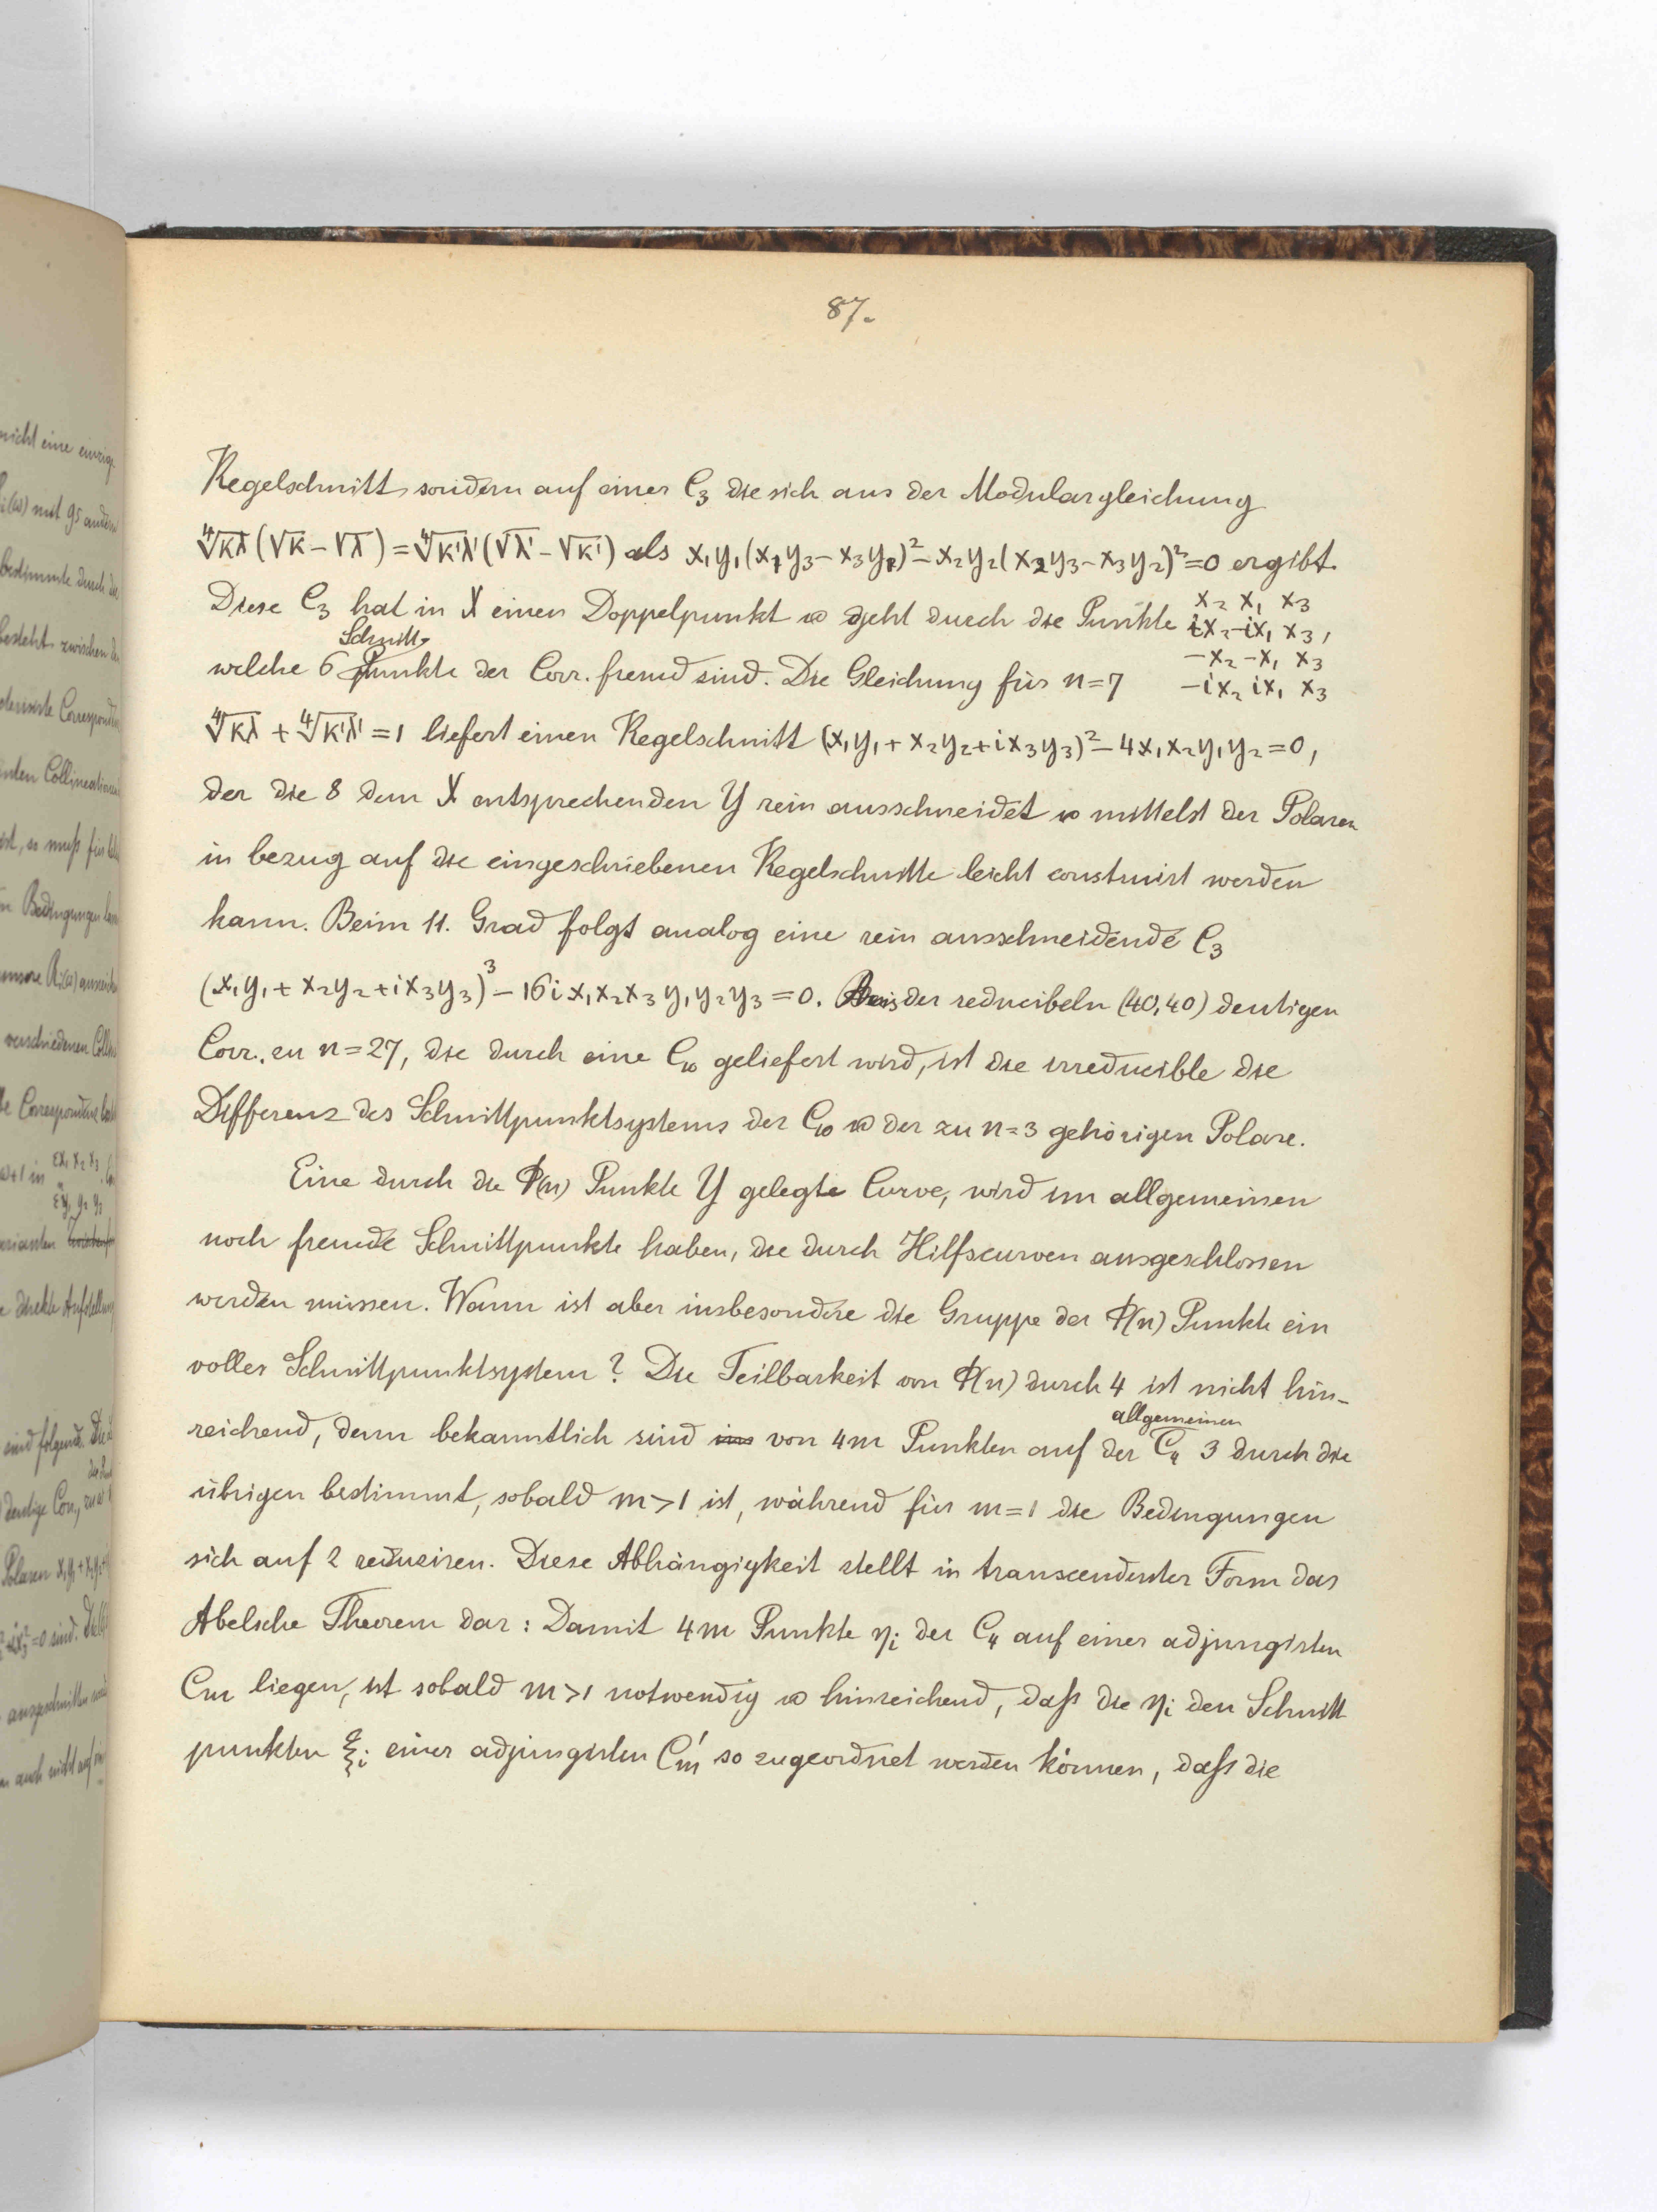 87.
Kegelschnitt, sondern auf einer C₃ die sich aus der Modulargleichung
∜κλ (√κ − √λ) = ∜κ'λ' (√λ' − √κ') als x₁y₁(x₁y₃ − x₃y₁)² − x₂y₂(x₂y₃ − x₃y₂)² = 0 ergibt.
Diese C₃ hat in X einen Doppelpunkt u geht durch die Punkte x₂ x₁ x₃
ix₂ −ix₁ x₃,
−x₂ −x₁ x₃
−ix₂ ix₁ x₃
welche 6 Schnittpunkte der Corr. fremd sind. Die Gleichung für n=7
∜κλ + ∜κ'λ' = 1 liefert einen Kegelschnitt (x₁y₁ + x₂y₂ + ix₃y₃)² − 4x₁x₂y₁y₂ = 0,
der die 8 dem X entsprechenden Y rein ausschneidet u mittelst der Polaren
in bezug auf die eingeschriebenen Kegelschnitte leicht construirt werden
kann. Beim 11. Grad folgt analog eine rein ausschneidende C₃
(x₁y₁ + x₂y₂ + ix₃y₃)³ − 16i x₁x₂x₃ y₁y₂y₃ = 0. der reducibeln (40,40) deutigen
Corr. zu n=27, die durch eine C₁₀ geliefert wird, ist die irreducible die
Differenz des Schnittpunktsystems der C₁₀ u der zu n=3 gehörigen Polare.
Eine durch die Φ(n) Punkte Y gelegte Curve, wird im allgemeinen
noch fremde Schnittpunkte haben, die durch Hilfscurven ausgeschlossen
werden müssen. Wann ist aber insbesondere die Gruppe der Φ(n) Punkte ein
volles Schnittpunktsystem? Die Teilbarkeit von Φ(n) durch 4 ist nicht hin-
reichend, denn bekanntlich sind von 4m Punkten auf der allgemeinen C₄ 3 durch die
übrigen bestimmt, sobald m>1 ist, während für m=1 die Bedingungen
sich auf 2 reduciren. Diese Abhängigkeit stellt in transcendenter Form das
Abelsche Theorem dar: Damit 4m Punkte ηᵢ der C₄ auf einer adjungirten
Cm liegen, ist sobald m>1 notwendig u hinreichend, daß die ηᵢ den Schnitt
punkten ξᵢ einer adjungirten C'm so zugeordnet werden können, daß die